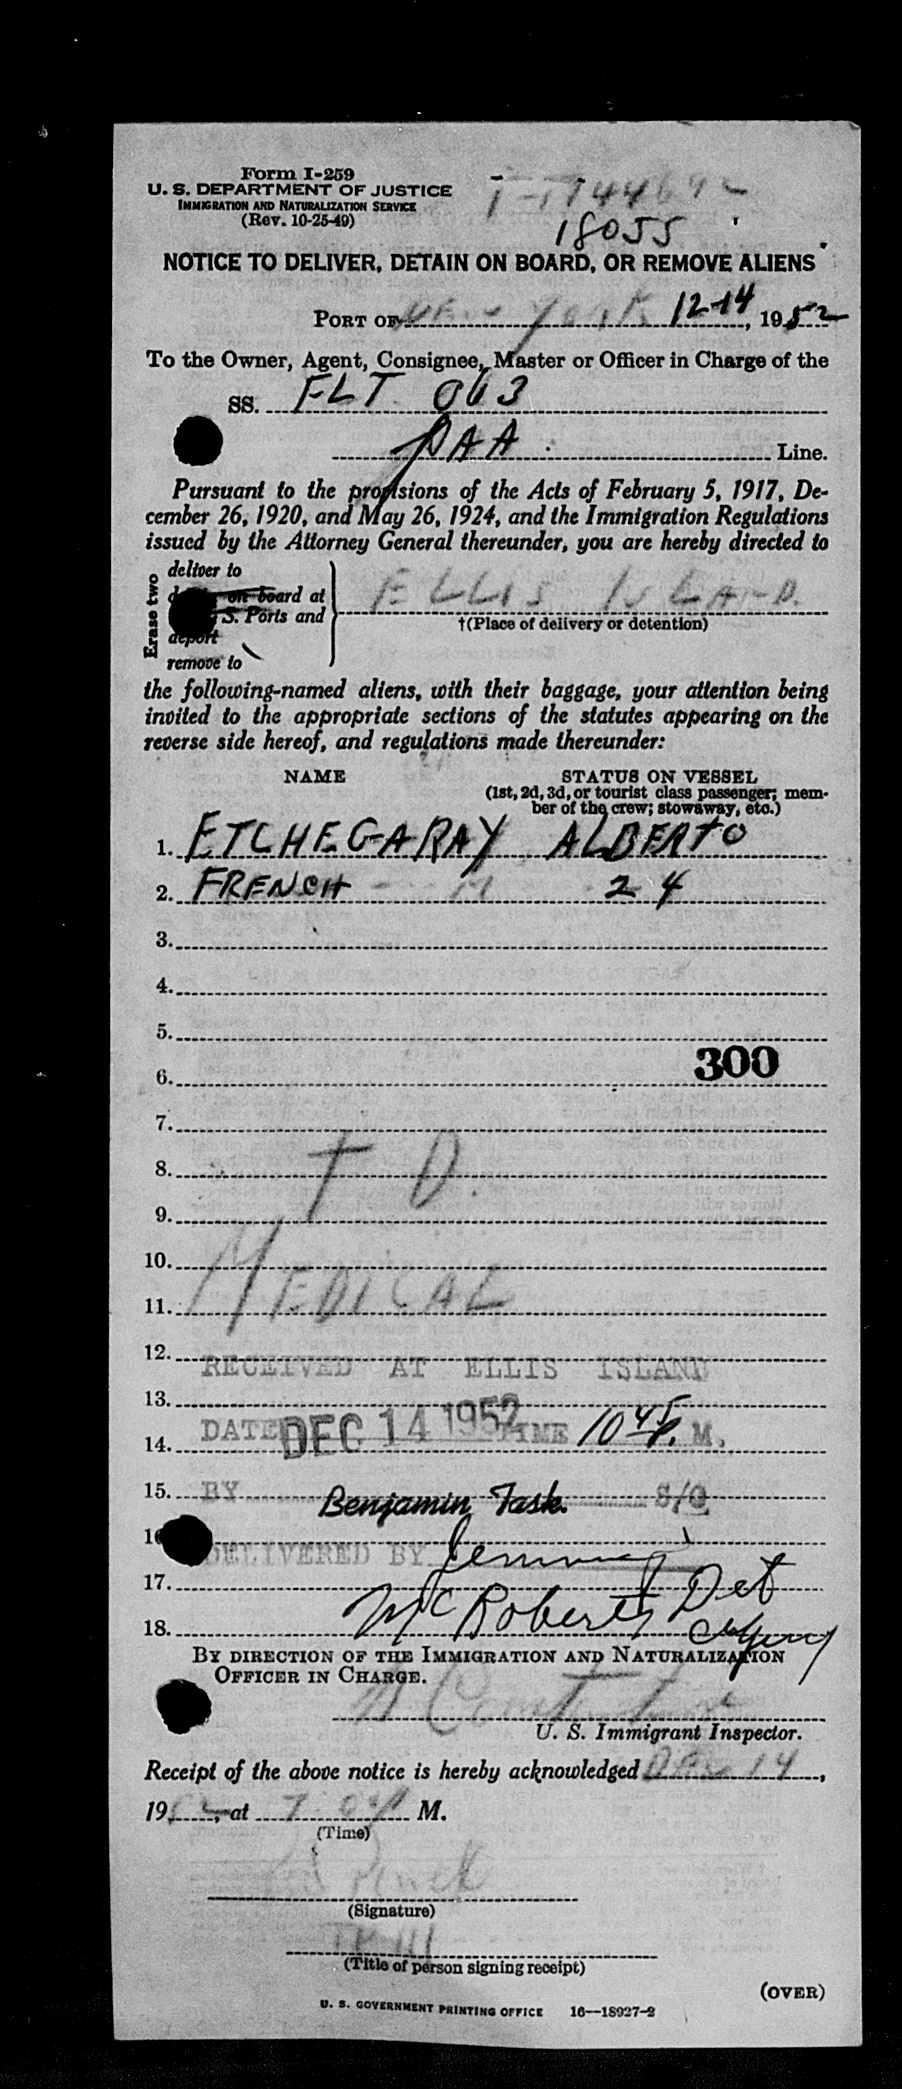 Form I-259
U. S. DEPARTMENT OF JUSTICE
IMMIGRATION AND NATURALIZATION SERVICE
(Rev. 10-25-49)
18055
NOTICE TO DELIVER, DETAIN ON BOARD, OR REMOVE ALIENS
PORT OF New York 12-14, 1952
To the Owner, Agent, Consignee, Master or Officer in Charge of the
SS. FLT 063
PAA Line.
Pursuant to the provisions of the Acts of February 5, 1917, De-
cember 26, 1920, and May 26, 1924, and the Immigration Regulations
issued by the Attorney General thereunder, you are hereby directed to
Erase two
deliver to
on board at
S. Ports and
deport
remove to
ELLIS ISLAND.
†(Place of delivery or detention)
the following-named aliens, with their baggage, your attention being
invited to the appropriate sections of the statutes appearing on the
reverse side hereof, and regulations made thereunder:
NAME STATUS ON VESSEL
(1st, 2d, 3d, or tourist class passenger; mem-
ber of the crew; stowaway, etc.)
1. ETCHEGARAY ALBERTO
2. FRENCH M 24
3.
4.
5.
300
6.
7.
8. T D.
9.
10.
11. MEDICAL
12.
RECEIVED AT ELLIS ISLAND
13.
DATE DEC 14 1952 TIME 10 45 P. M.
14.
15. BY Benjamin Task. S/O
16
DELIVERED BY
17.
McRoberts Det
18. Agency
BY DIRECTION OF THE IMMIGRATION AND NATURALIZATION
OFFICER IN CHARGE.
U. S. Immigrant Inspector.
Receipt of the above notice is hereby acknowledged Dec 14,
1952, at M.
(Time)
(Signature)
(Title of person signing receipt)
(OVER)
U. S. GOVERNMENT PRINTING OFFICE 16—18927-2